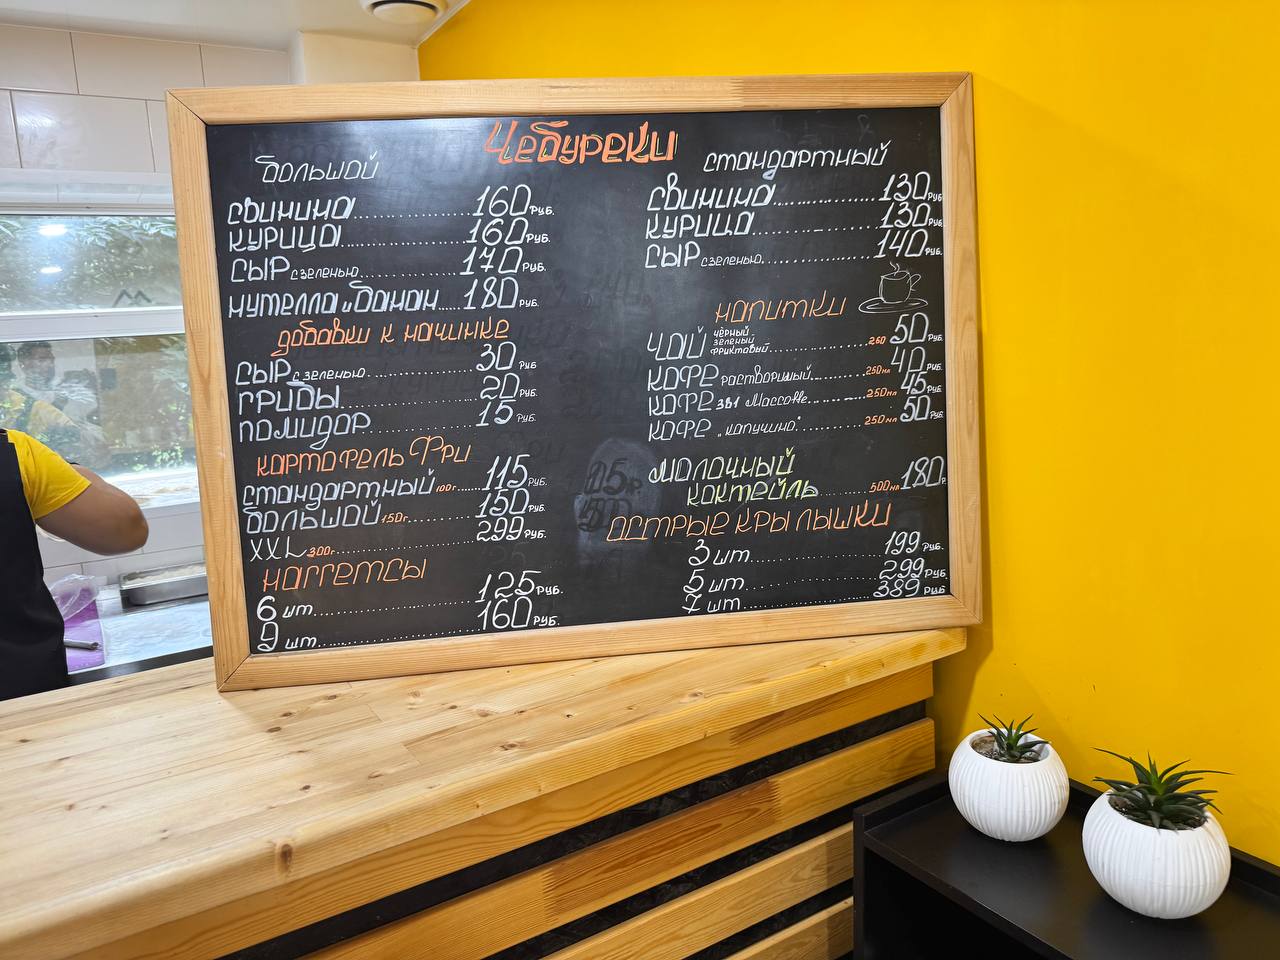 Чебуреки
большой
свинина 160 руб.
курица 160 руб.
сыр с зеленью 170 руб.
нутелла и банан 180 руб.
добавки к начинке
сыр с зеленью 30 руб
грибы 20 руб.
помидор 15 руб.
картофель Фри
стандартный 100г. 115 руб.
большой 150г. 150 руб.
XXL 300г. 299 руб.
наггетсы
6 шт. 125 руб.
9 шт. 160 руб.
стандартный
свинина 130 руб
курица 130 руб
сыр с зеленью 140 руб.
напитки
чай чёрный зеленый фруктовый 260 50 руб.
кофе растворимый 250 мл 40 руб.
кофе 3в1 Maccoffe 250 мл 45 руб.
кофе "капучино" 250 мл 50 руб.
молочный
коктейль 500 мл 180 р
острые крылышки
3 шт. 199 руб.
5 шт. 299 руб
7 шт. 389 руб